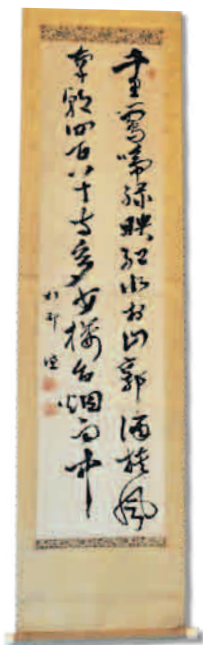 千里鶯啼緑映紅水村山郭酒旗風
南朝四百八十寺多少楼台烟雨中